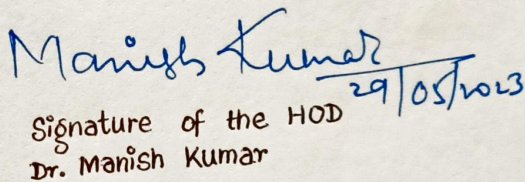 Manish Kumar
29/05/2023
Signature of the HOD
Dr. Manish Kumar